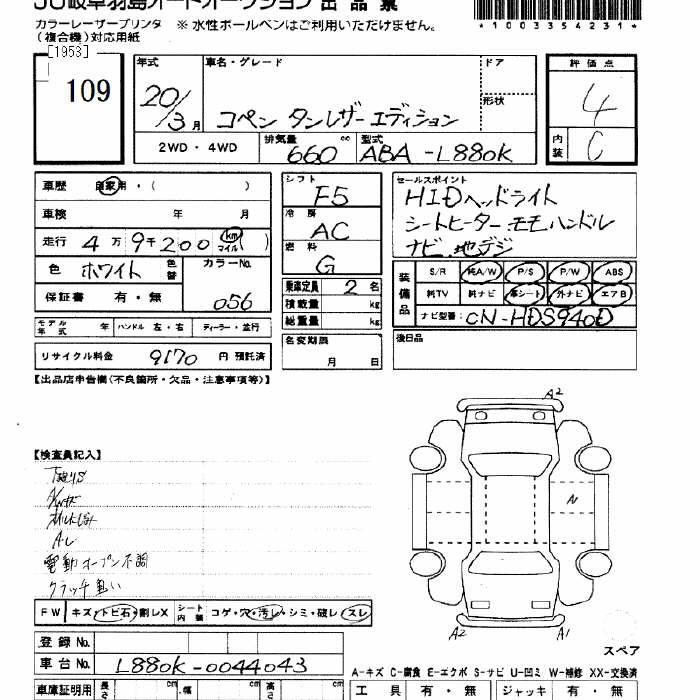 JU岐阜羽島オートオークション 出品票
カラーレーザープリンタ ※水性ボールペンはご利用いただけません。
(複合機)対応用紙
1003354231
[1953]
109
年式 20/3月
車名・グレード コペン タンレザーエディション
ドア
形状
評価点 4
内装 C
2WD・4WD 排気量 660 cc 型式 ABA-L880K
車歴 自家用・( )
車検 年 月
走行 4万9千200 km マイル ( )
色 ホワイト 色替 カラーNo. 056
保証書 有・無
モデル年式 年 ハンドル 左・右 ディーラー・並行
リサイクル料金 9170 円 預託済
シフト F5
冷房 AC
燃料 G
乗車定員 2 名
積載量 kg
総重量 kg
名変期限 月 日
セールスポイント
HIDヘッドライト
シートヒーター モモハンドル
ナビ 地デジ
装備品 S/R 純A/W P/S P/W ABS
純TV 純ナビ 革シート 外ナビ エアB
ナビ型番: CN-HDS940D
後日品
【出品店申告欄(不良箇所・欠品・注意事項等)】
【検査員記入】
A/Wキズ
電動オープン不調
クラッチ重い
FW キズ・トビ石・割レX シート内装 コゲ・穴・汚レ・シミ・破レ・スレ
登録No.
車台No. L880K-0044043
車庫証明用 長さ cm 幅 cm 高さ cm
A2
N
A2
A1
スペア
A-キズ C-腐食 E-エクボ S-サビ U-凹ミ W-補修 XX-交換済
工具 有・無 ジャッキ 有・無